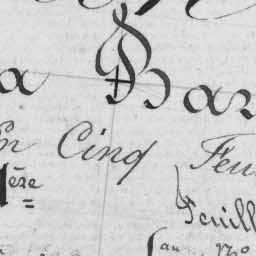 a Bar
En Cinq Feu
1ère
Feuill
au